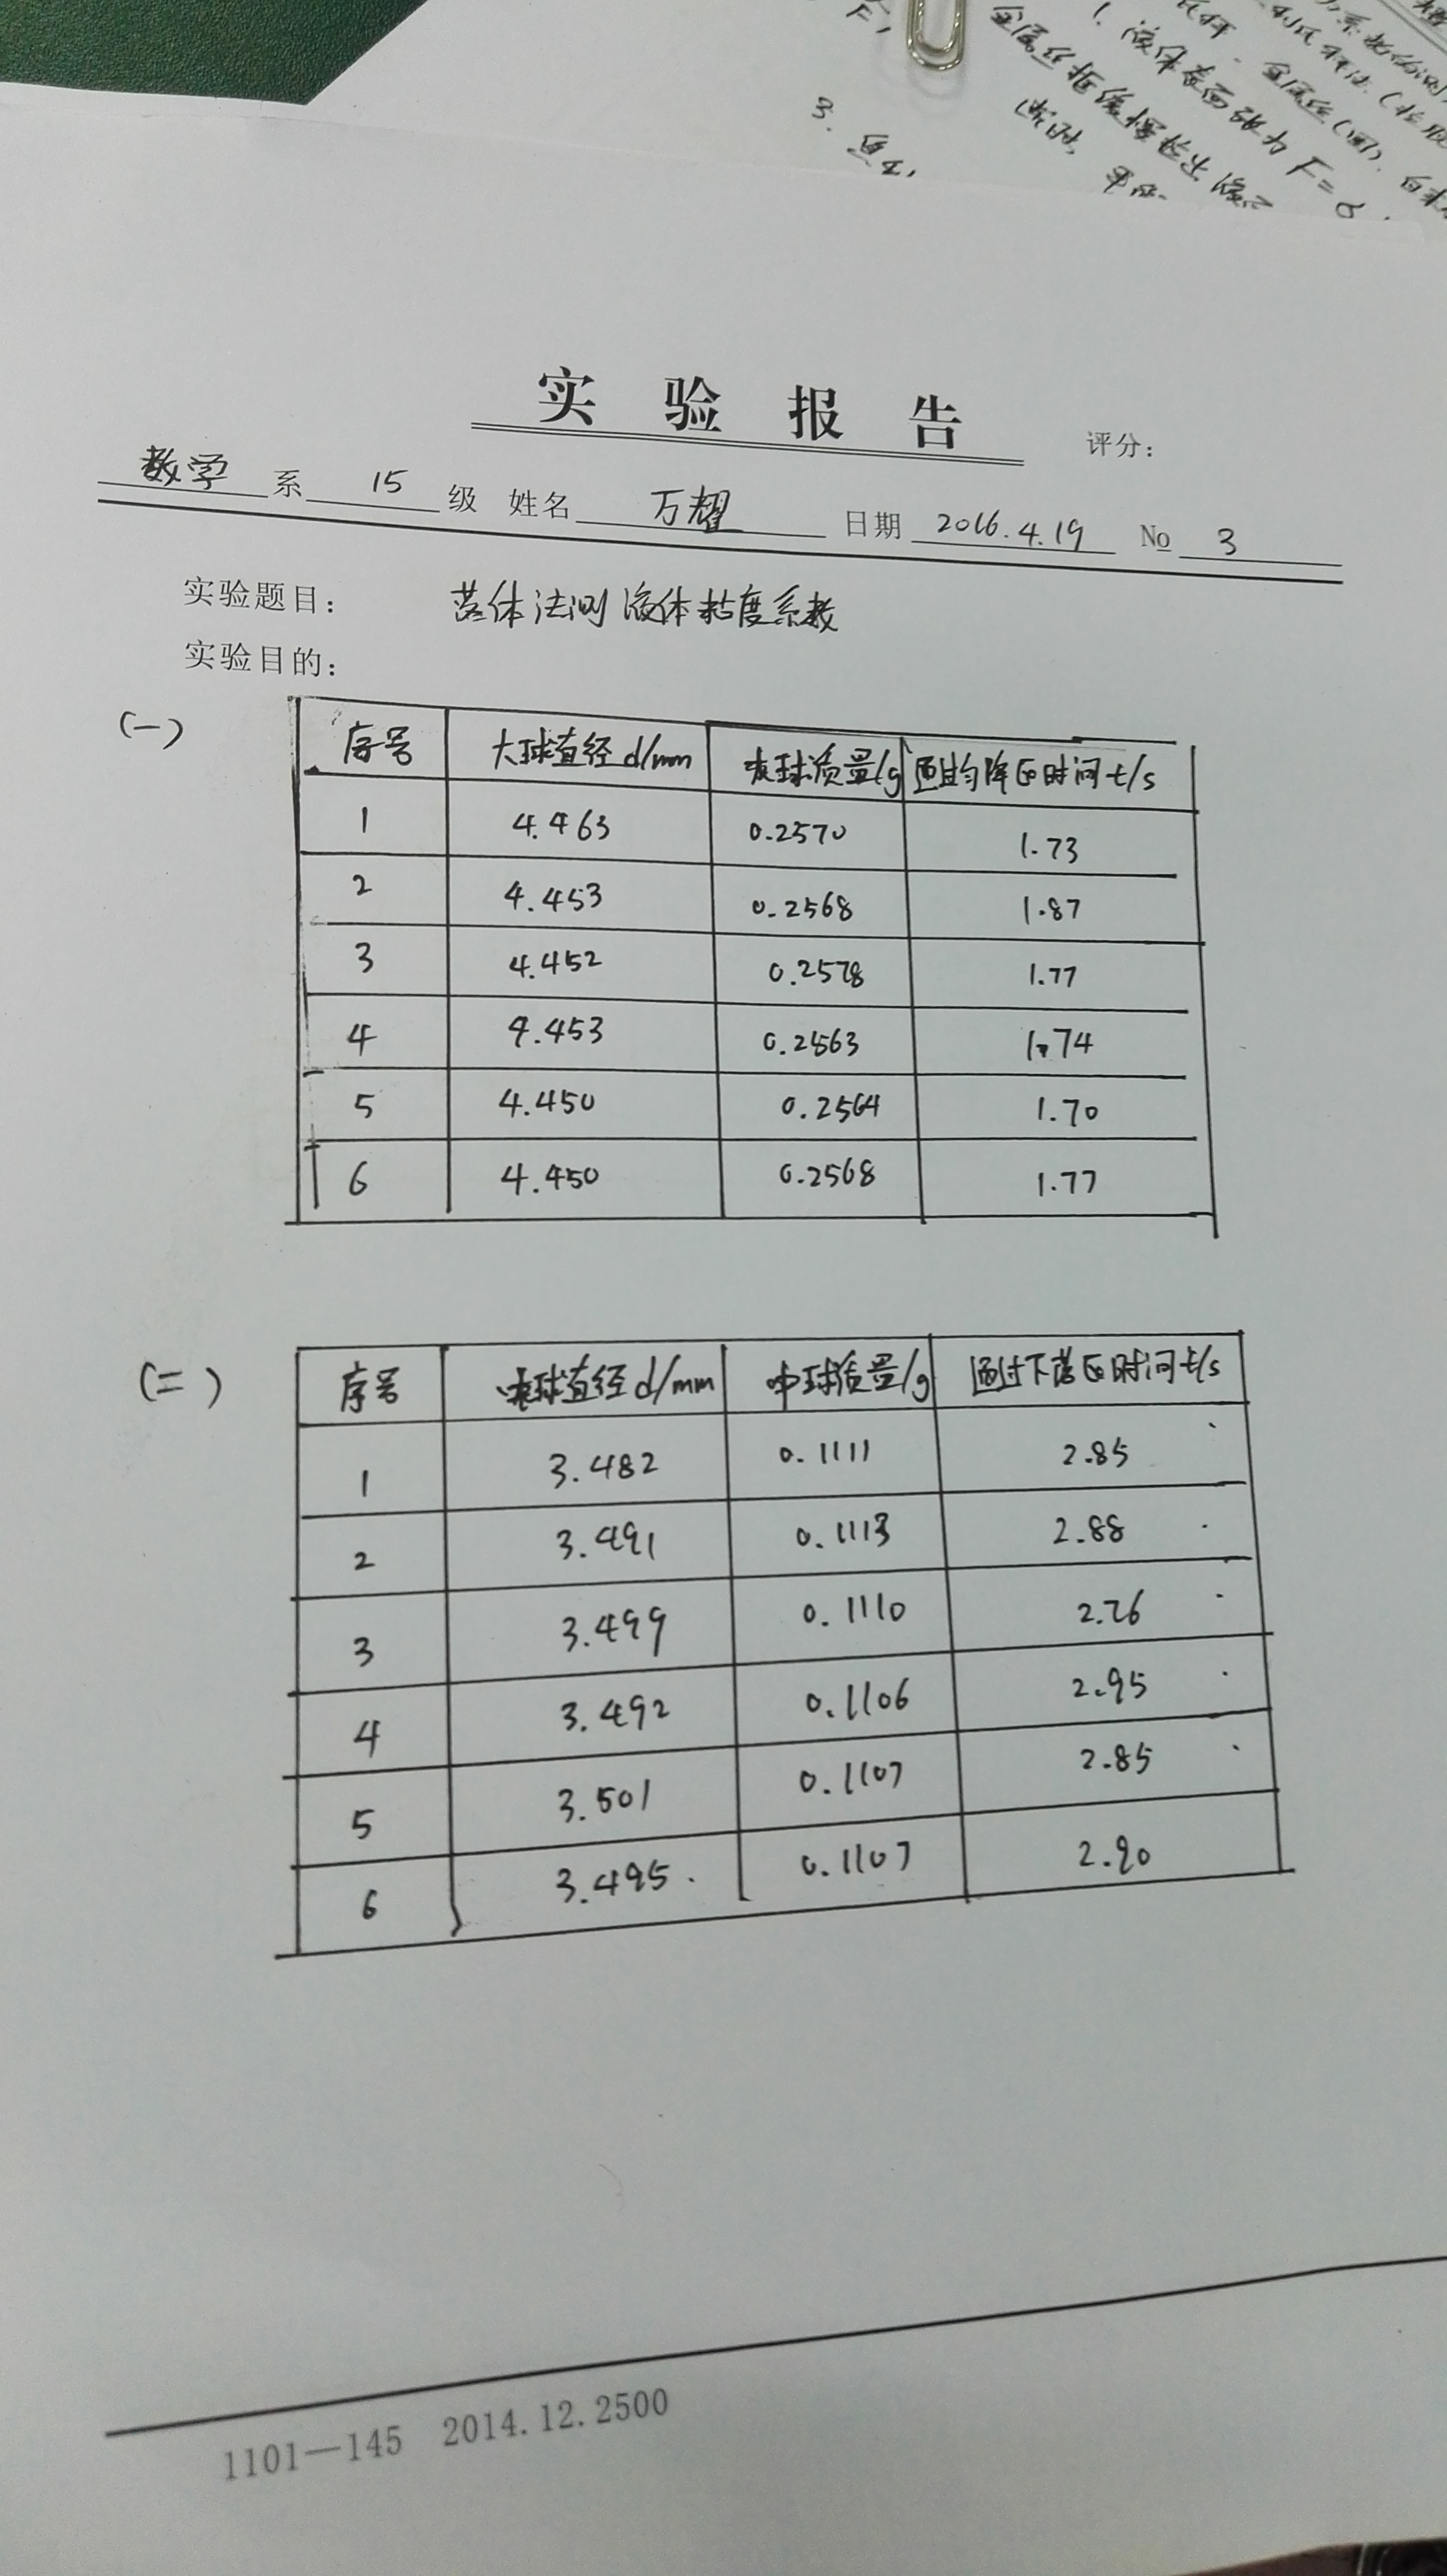 F,
3.
1. 液体表面张力 F=α
金属丝框缓慢拉出液
实验报告
评分：
数学 系 15 级 姓名 万耀 日期 2016.4.19 No 3
实验题目： 落体法测液体粘度系数
实验目的：
(一)
序号 大球直径d/mm 大球质量/g 通过匀降区时间t/s
1 4.463 0.2570 1.73
2 4.453 0.2568 1.87
3 4.452 0.2578 1.77
4 4.453 0.2563 1.74
5 4.450 0.2564 1.70
6 4.450 0.2568 1.77
(二)
序号 中球直径d/mm 中球质量/g 通过下落区时间t/s
1 3.482 0.1111 2.85
2 3.491 0.1113 2.88
3 3.499 0.1110 2.76
4 3.492 0.1106 2.95
5 3.501 0.1107 2.85
6 3.495 0.1107 2.90
1101—145 2014.12.2500